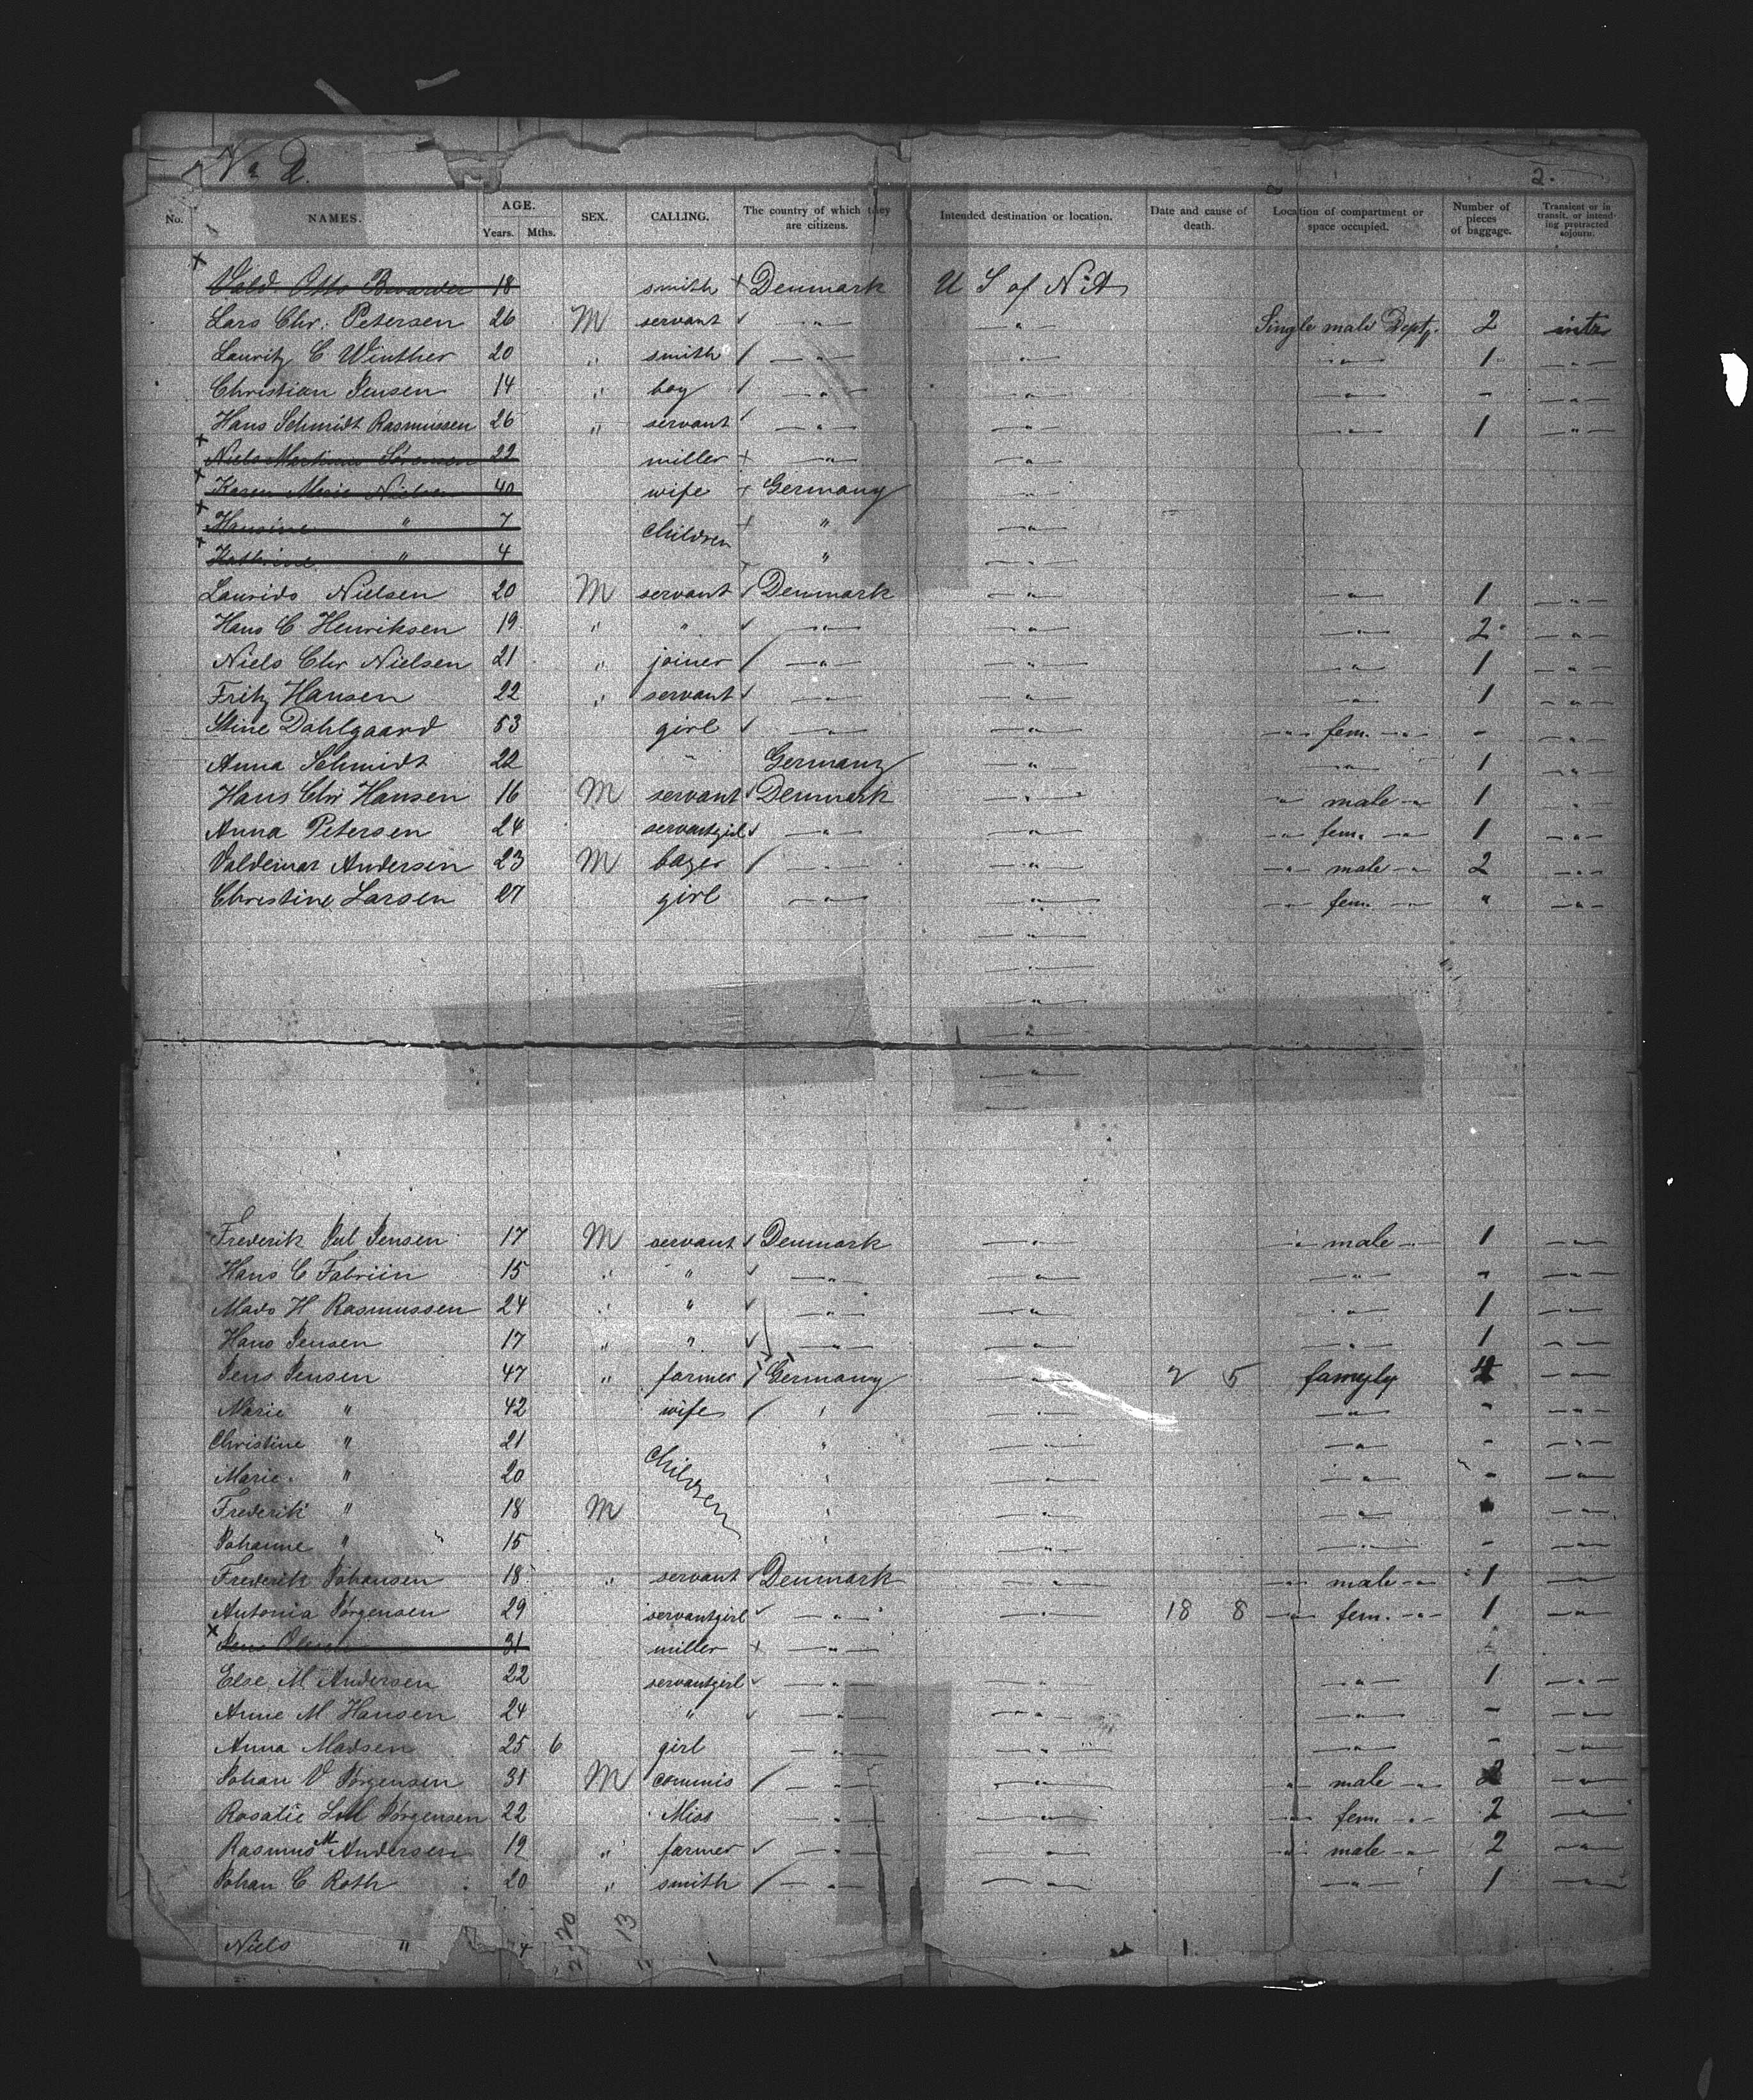 No 2. 2.
No. NAMES. AGE. Years. Mths. SEX. CALLING. The country of which they are citizens. Intended destination or location. Date and cause of death. Location of compartment or space occupied. Number of pieces of baggage. Transient or in transit, or intending protracted sojourn.
x Vald. Otto 18 smith + Denmark U S of N A
Lars Chr. Petersen 26 M servant ✓ — " — — " — Single male Dept. 2
Lauritz C Winther 20 " smith / — " — — " — — " — 1 — " —
Christian Jensen 14 " boy ✓ — " — — " — — " — - — " —
Hans Schmidt Rasmussen 26 " servant ✓ — " — — " — — " — 1 — " —
x Niels Martinus Sörensen 22 miller + — " — — " —
x Karen Marie Nielsen 40 wife + Germany — " —
x Hansine " 7 children + " — " —
x Kathrine " 4 " — " —
Laurids Nielsen 20 M servant ✓ Denmark — " — — " — 1 — " —
Hans C Henriksen 19 " " ✓ — " — — " — — " — 2 — " —
Niels Chr Nielsen 21 " joiner / — " — — " — — " — 1 — " —
Fritz Hansen 22 " servant ✓ — " — — " — — " — 1 — " —
Stine Dahlgaard 53 girl ✓ — " — — " — — " — fem. — " — - — " —
Anna Schmidt 22 " Germany — " — — " — 1 — " —
Hans Chr Hansen 16 M servant ✓ Denmark — " — — " — male — " — 1 — " —
Anna Petersen 24 servantgirl ✓ — " — — " — — " — fem. — " — 1 — " —
Valdemar Andersen 23 M bager / — " — — " — — " — male — " — 2 — " —
Christine Larsen 27 girl — " — — " — — " — fem. — " — " — " —
— " —
— " —
— " —
— " —
— " —
Frederik Jul Jensen 17 M servant ✓ Denmark — " — — " — male — " — 1 — " —
Hans C Fabriin 15 " " ✓ — " — — " — — " — - — " —
Mads H Rasmussen 24 " " ✓ — " — — " — — " — 1 — " —
Hans Jensen 17 " " ✓ — " — — " — — " — 1 — " —
Jens Jensen 47 " farmer / Germany — " — 2 5 famyly 4 — " —
Marie " 42 wife / " — " — — " — - — " —
Christine " 21 children " — " — — " — - — " —
Marie " 20 " — " — — " — - — " —
Frederik " 18 M " — " — — " — — " —
Johanne " 15 " — " — — " — - — " —
Frederik Johansen 18 " servant ✓ Denmark — " — — " — male — " — 1 — " —
Antonia Jörgensen 29 servantgirl ✓ — " — — " — 18 8 — " — fem. — " — 1 — " —
x Jens Olesen 31 miller + — " —
Else M Andersen 22 servantgirl ✓ — " — — " — — " — 1 — " —
Anne M Hansen 24 " ✓ — " — — " — — " — - — " —
Anna Madsen 25 6 girl — " — — " — — " — - — " —
Johan V Jörgensen 31 M commis / — " — — " — — " — male — " — 2 — " —
Rosalie Jörgensen 22 Miss — " — — " — — " — fem. — " — 2 — " —
Rasmus M Andersen 19 " farmer ✓ — " — — " — — " — male — " — 2 — " —
Johan C Roth 20 " smith / — " — — " — — " — 1 — " —
Niels " 4 13